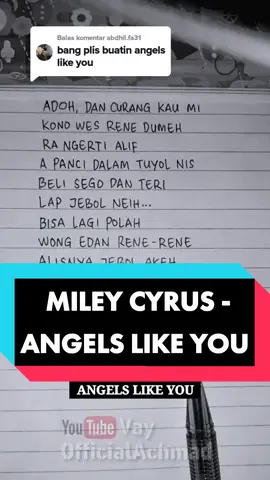 Balas komentar abdhil.fa31
bang plis buatin angels
like you
ADOH, DAN CURANG KAU MI
KONO WES RENE DUMEH
RA NGERTI ALIF
A PANCI DALAM TUYOL NIS
BELI SEGO DAN TERI
LAP JEBOL NEIH...
BISA LAGI POLAH
WONG EDAN RENE-RENE
ALISNYA JEBOL AKEH
MILEY CYRUS -
ANGELS LIKE YOU
ANGELS LIKE YOU
YouTube Vay
OfficialAchmad